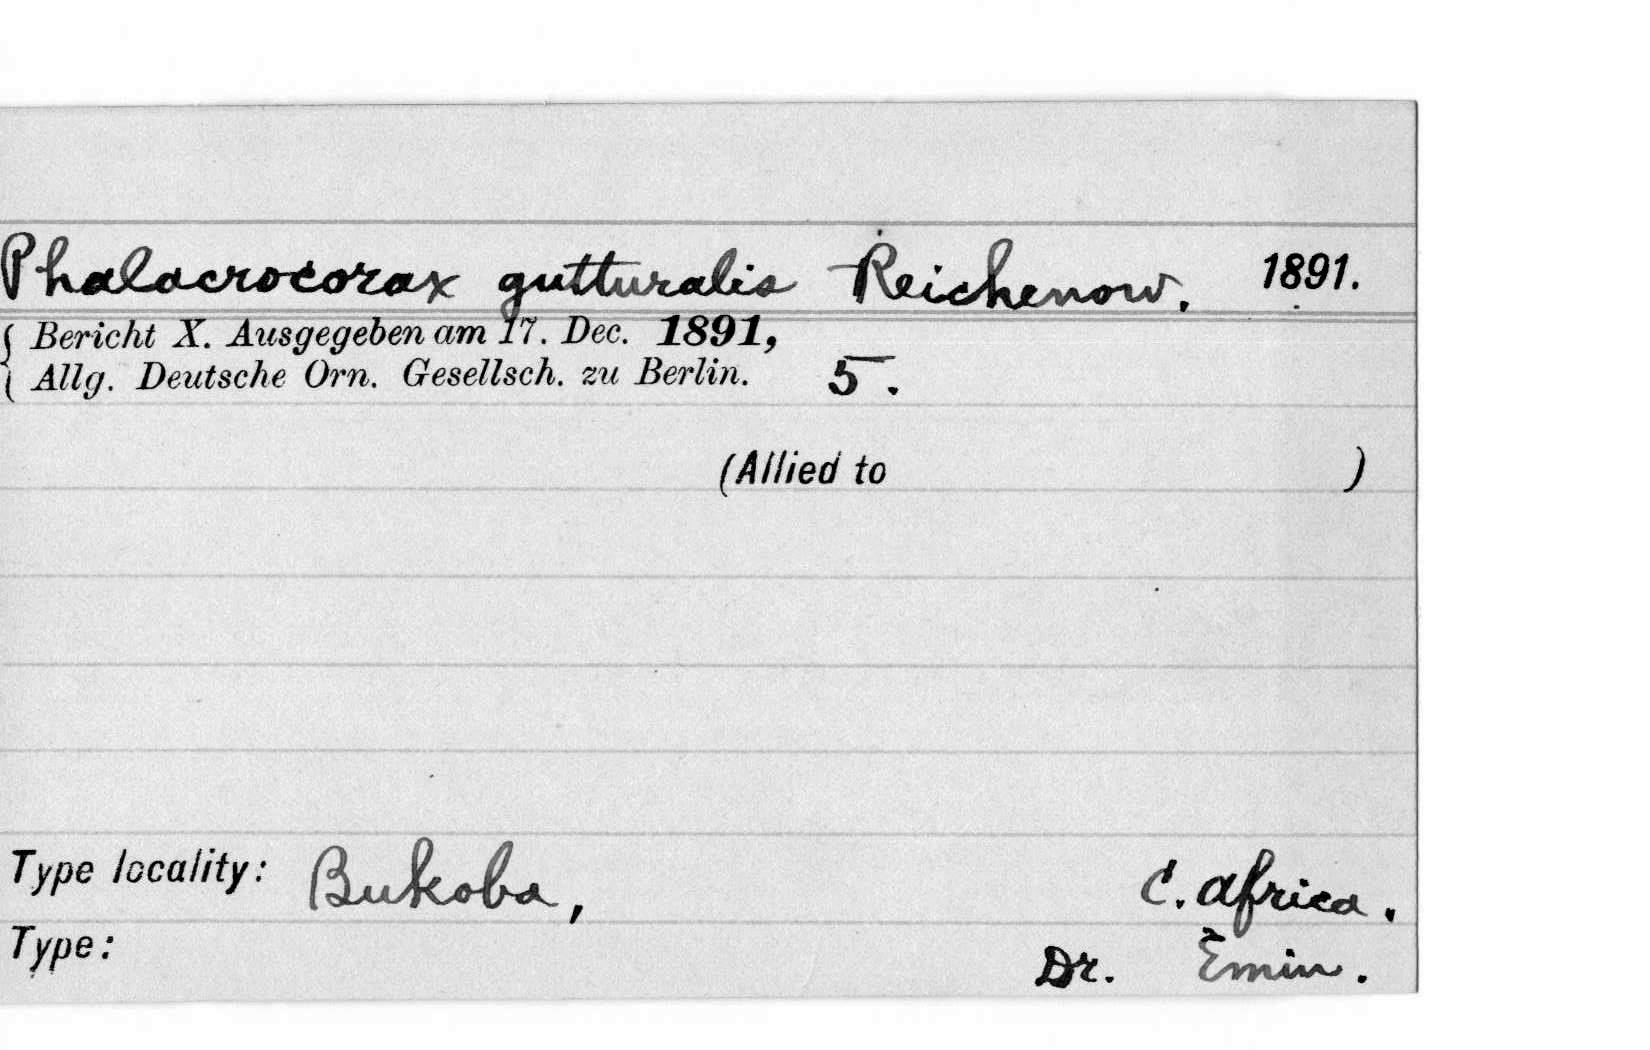 Phalacrocorax gutturalis Reichenow. 1891.
{ Bericht X. Ausgegeben am 17. Dec. 1891,
Allg. Deutsche Orn. Gesellsch. zu Berlin. 5.
(Allied to )
Type locality: Bukoba, C. Africa.
Type: Dr. Emin.